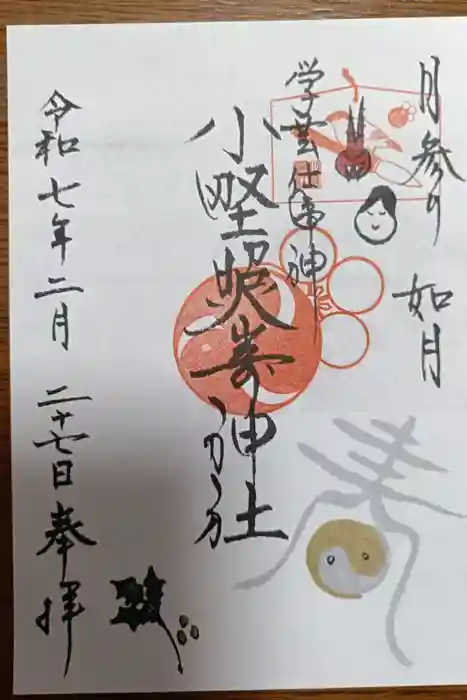 月参り 如月
学芸仕事神
小野照崎神社
春
令和七年二月二十七日奉拝